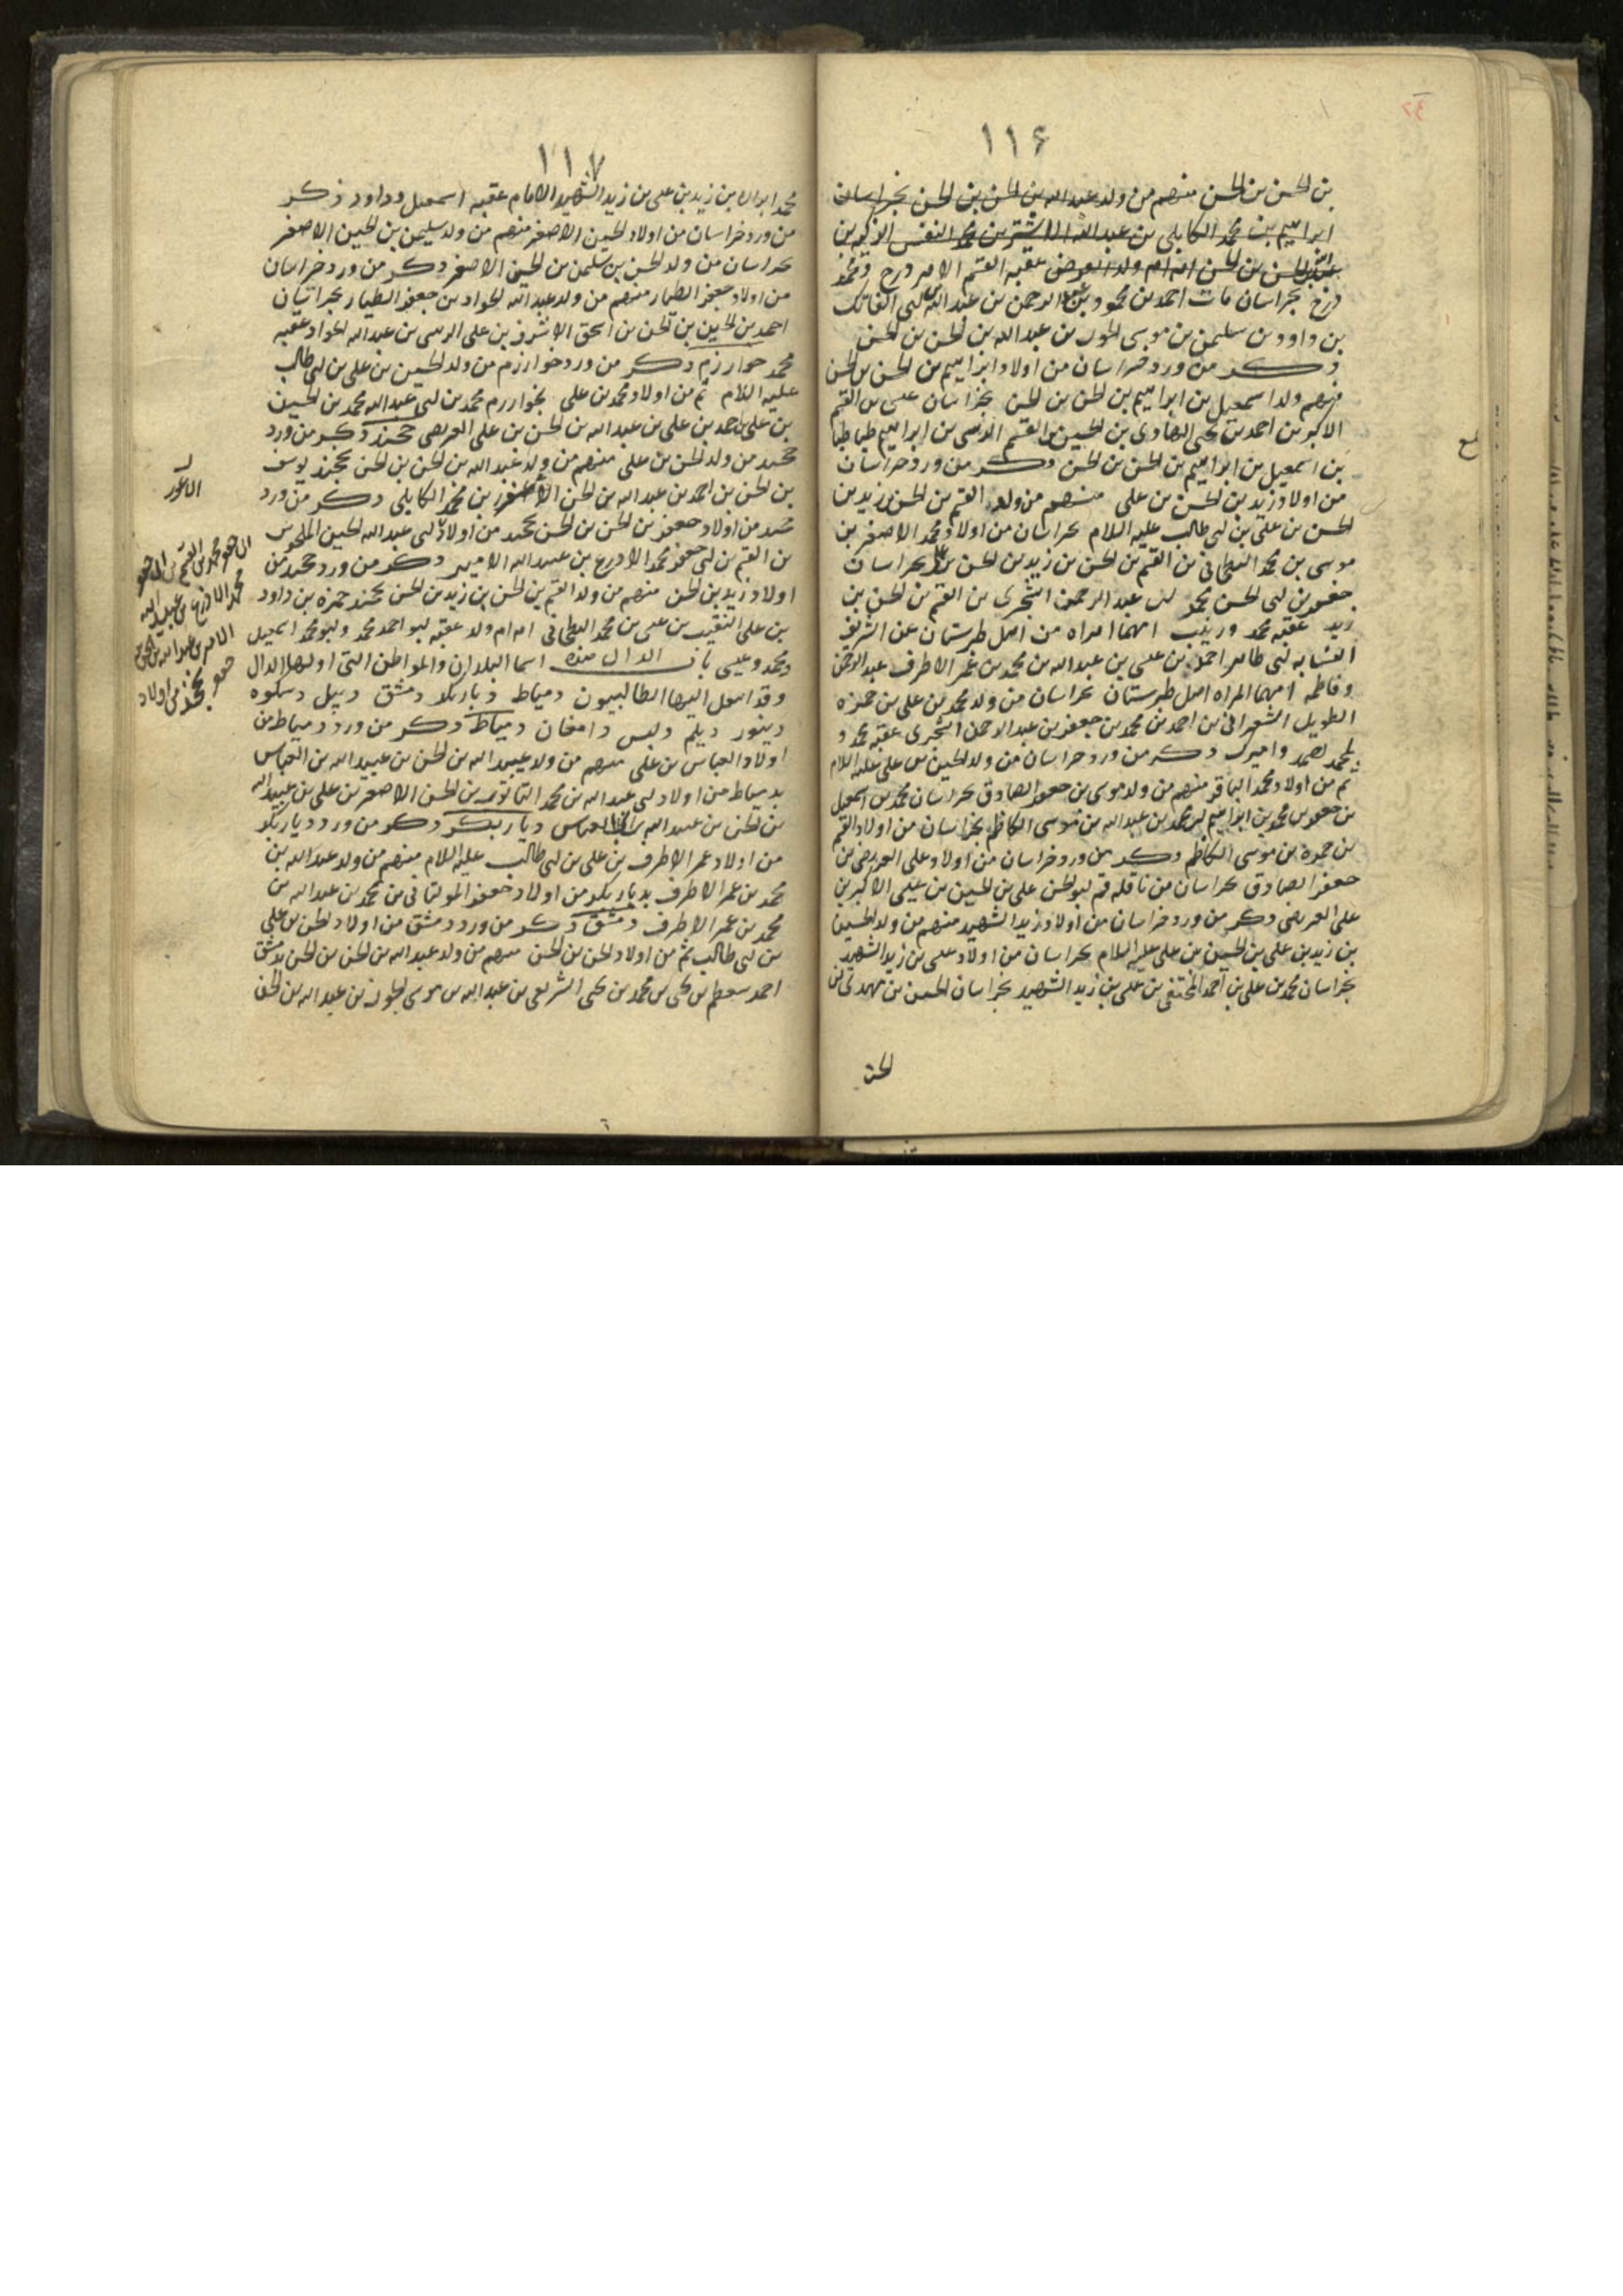 ١١٦
بن الحسن بن الحسن منهم من ولد عبد الله بن الحسن بن الحسن بخراسان
ابراهيم بن محمد الكابلي بن عبد الله الاشتر بن محمد النفس الزكيه بن
عبد الله بن الحسن بن الحسن امه ام ولد العرض عقبه القسم الامير درج ومحمد
درج بخراسان مات احمد بن محمود بن عبد الرحمن بن عبد الله بن ابى الفاتك
بن داود بن سليمن بن موسى الجون بن عبد الله بن الحسن بن الحسن
ذكر من ورد خراسان من اولاد ابراهيم بن الحسن بن الحسن
منهم ولد اسمعيل بن ابراهيم بن الحسن بن الحسن بخراسان على بن القسم
الاكبر بن احمد بن يحيى الهادى بن الحسين بن القسم الرسى بن ابراهيم طباطبا
بن اسمعيل بن ابراهيم بن الحسن بن الحسن ذكر من ورد خراسان
من اولاد زيد بن الحسن بن على منهم من ولد القسم بن الحسن بن زيد بن
الحسن بن على بن ابى طالب عليه السلام بخراسان من اولاد محمد الاصغر بن
موسى بن محمد البطحانى بن القسم بن الحسن بن زيد بن الحسن بن على بخراسان
جعفر بن ابى الحسن محمد بن عبد الرحمن الشجرى بن القسم بن الحسن بن
زيد عقبه محمد وزينب امهما امراه من اهل طبرستان عن الشريف
النسابه ابى طاهر احمد بن عيسى بن عبد الله بن محمد بن عمر الاطرف عبد الرحمن
وفاطمه امهما امراه اهل طبرستان بخراسان من ولد محمد بن على بن حمزه
الطويل الشعرانى بن احمد بن محمد بن جعفر بن عبد الرحمن الشجرى عقبه محمد و
محمد واميرك ذكر من ورد خراسان من ولد الحسين بن على عليه السلام
ثم من اولاد محمد الباقر منهم من ولد موسى بن جعفر الصادق بخراسان محمد بن اسمعيل
بن جعفر بن محمد بن ابراهيم بن محمد بن عبد الله بن موسى الكاظم بخراسان من اولاد القسم
بن حمزة بن موسى الكاظم ذكر من ورد خراسان من اولاد على العريضى بن
جعفر الصادق بخراسان من ناقله قم ابو الحسن على بن الحسين بن عيسى الاكبر بن
على العريضى ذكر من ورد خراسان من اولاد زيد الشهيد منهم من ولد الحسين
بن زيد بن على بن الحسين بن على عليه السلام بخراسان من اولاد عيسى بن زيد الشهيد
بخراسان محمد بن على بن احمد المختفى بن على بن زيد الشهيد بخراسان الحسن بن مهدى بن
الحسن
١١٧
محمد ابراه بن زيد بن على بن زيد الشهيد الامام عقبه اسمعيل وداود ذكر
من ورد خراسان من اولاد الحسين الاصغر منهم من ولد سليمن بن الحسين الاصغر
بخراسان من ولد الحسن بن سليمن بن الحسين الاصغر ذكر من ورد خراسان
من اولاد جعفر الطيار منهم من ولد عبد الله الجواد بن جعفر الطيار بخراسان
احمد بن الحسين بن الحسن بن اسحق الاشرف بن على الزينبى بن عبد الله الجواد عقبه
محمد خوارزم ذكر من ورد خوارزم من ولد الحسين بن على بن ابى طالب
عليه السلام ثم من اولاد محمد بن على بخوارزم محمد بن ابى عبد الله محمد بن الحسين
بن على بن احمد بن على بن عبد الله بن الحسن بن على العريضى خجند ذكر من ورد
خجند من ولد الحسن بن على منهم من ولد عبد الله بن الحسن بن الحسن بخجند يوسف
بن الحسن بن احمد بن عبد الله بن الحسن الاصغر بن محمد الكابلى ذكر من ورد
خجند من اولاد جعفر بن الحسن بن الحسن بخجند من اولاد ابى عبد الله الحسين
بن القسم بن ابى جعفر محمد الادرع بن عبيد الله الامير ذكر من ورد خجند من
اولاد زيد بن الحسن منهم من ولد القسم بن الحسن بن زيد بن الحسن بخجند حمزه بن داود
بن على النقيب بن عيسى بن محمد البطحانى امه ام ولد عقبه ابو احمد محمد وابو محمد اسمعيل
ومحمد وعيسى باب الدال هذه اسما البلدان والمواطن التى اولها الدال
وقد انتقل اليها الطالبيون دمياط دياربكر دمشق ديبل دسكره
دينور ديلم دامغان دمياط ذكر من ورد دمياط من
اولاد العباس بن على منهم من ولد عبيد الله بن الحسن بن عبيد الله بن العباس
بدمياط من اولاد ابى عبد الله بن محمد بن الحسن الاصغر بن على بن عبيد الله
بن الحسن بن عبيد الله بن العباس ديار بكر ذكر من ورد ديار بكر
من اولاد عمر الاطرف بن على بن ابى طالب عليه السلام منهم من ولد عبد الله بن
محمد بن عمر الاطرف بديار بكر من اولاد جعفر المولتانى بن محمد بن عبد الله بن
محمد بن عمر الاطرف دمشق ذكر من ورد دمشق من اولاد الحسن بن على
بن ابى طالب ثم من اولاد الحسن بن الحسن منهم من ولد عبد الله بن الحسن بن الحسن بدمشق
احمد بن يحيى بن محمد بن يحيى بن عبد الله بن موسى الجون بن عبد الله بن الحسن
الاعور